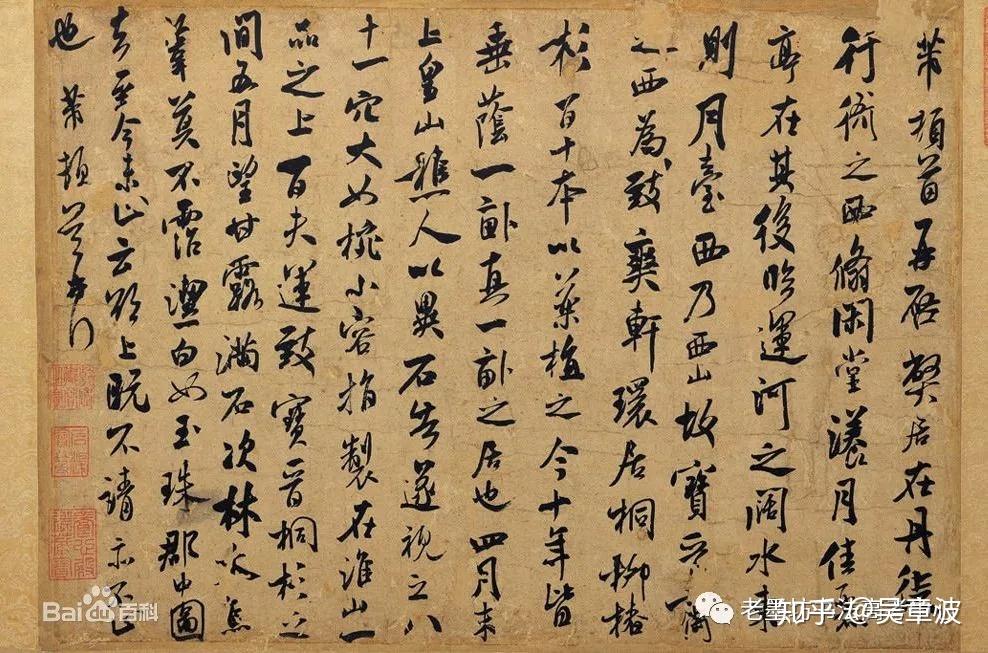 芾頓首再啓弊居在丹徒
行衙之西翛閑堂漾月佳麗
亭在其後臨運河之闊水東
則月臺西乃西山故寶晉齋
之西為致爽軒環居桐柳椿
杉百十本以藥植之今十年皆
垂蔭一畝真一畝之居也四月末
上皇山樵人以異石告遂視之八
十一穴大如椀小容指製在淮山一
品之上百夫運致寶晉桐杉之
間五月望甘露滿石次林木焉
葦莫不霑潔白如玉珠郡中圖
去至今未止云欲上既不請亦不止
也芾頓首再拜
Bai百科
知乎 @吴章波